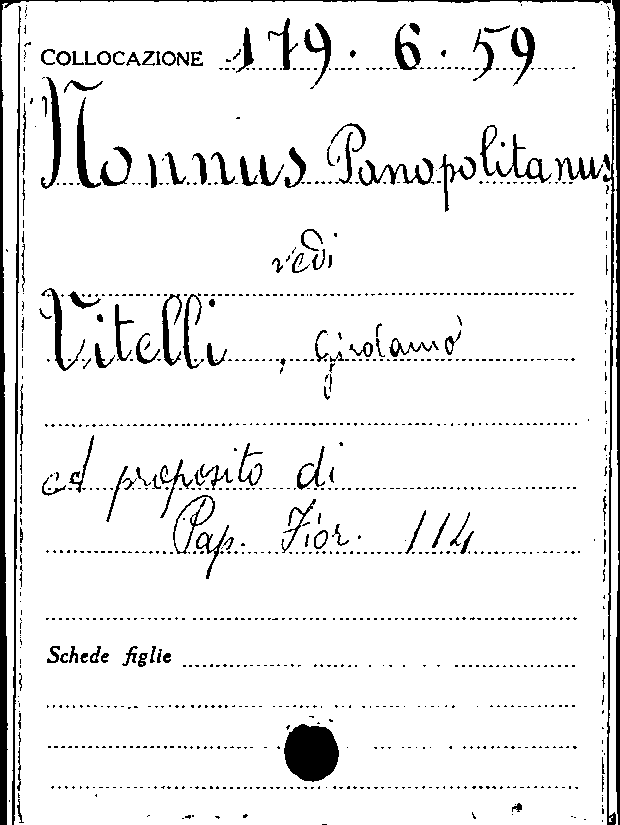 COLLOCAZIONE 179.6.59
Nonnus Panopolitanus
vedi
Vitelli, Girolamo
A proposito di
Pap. Fior. 114
Schede figlie